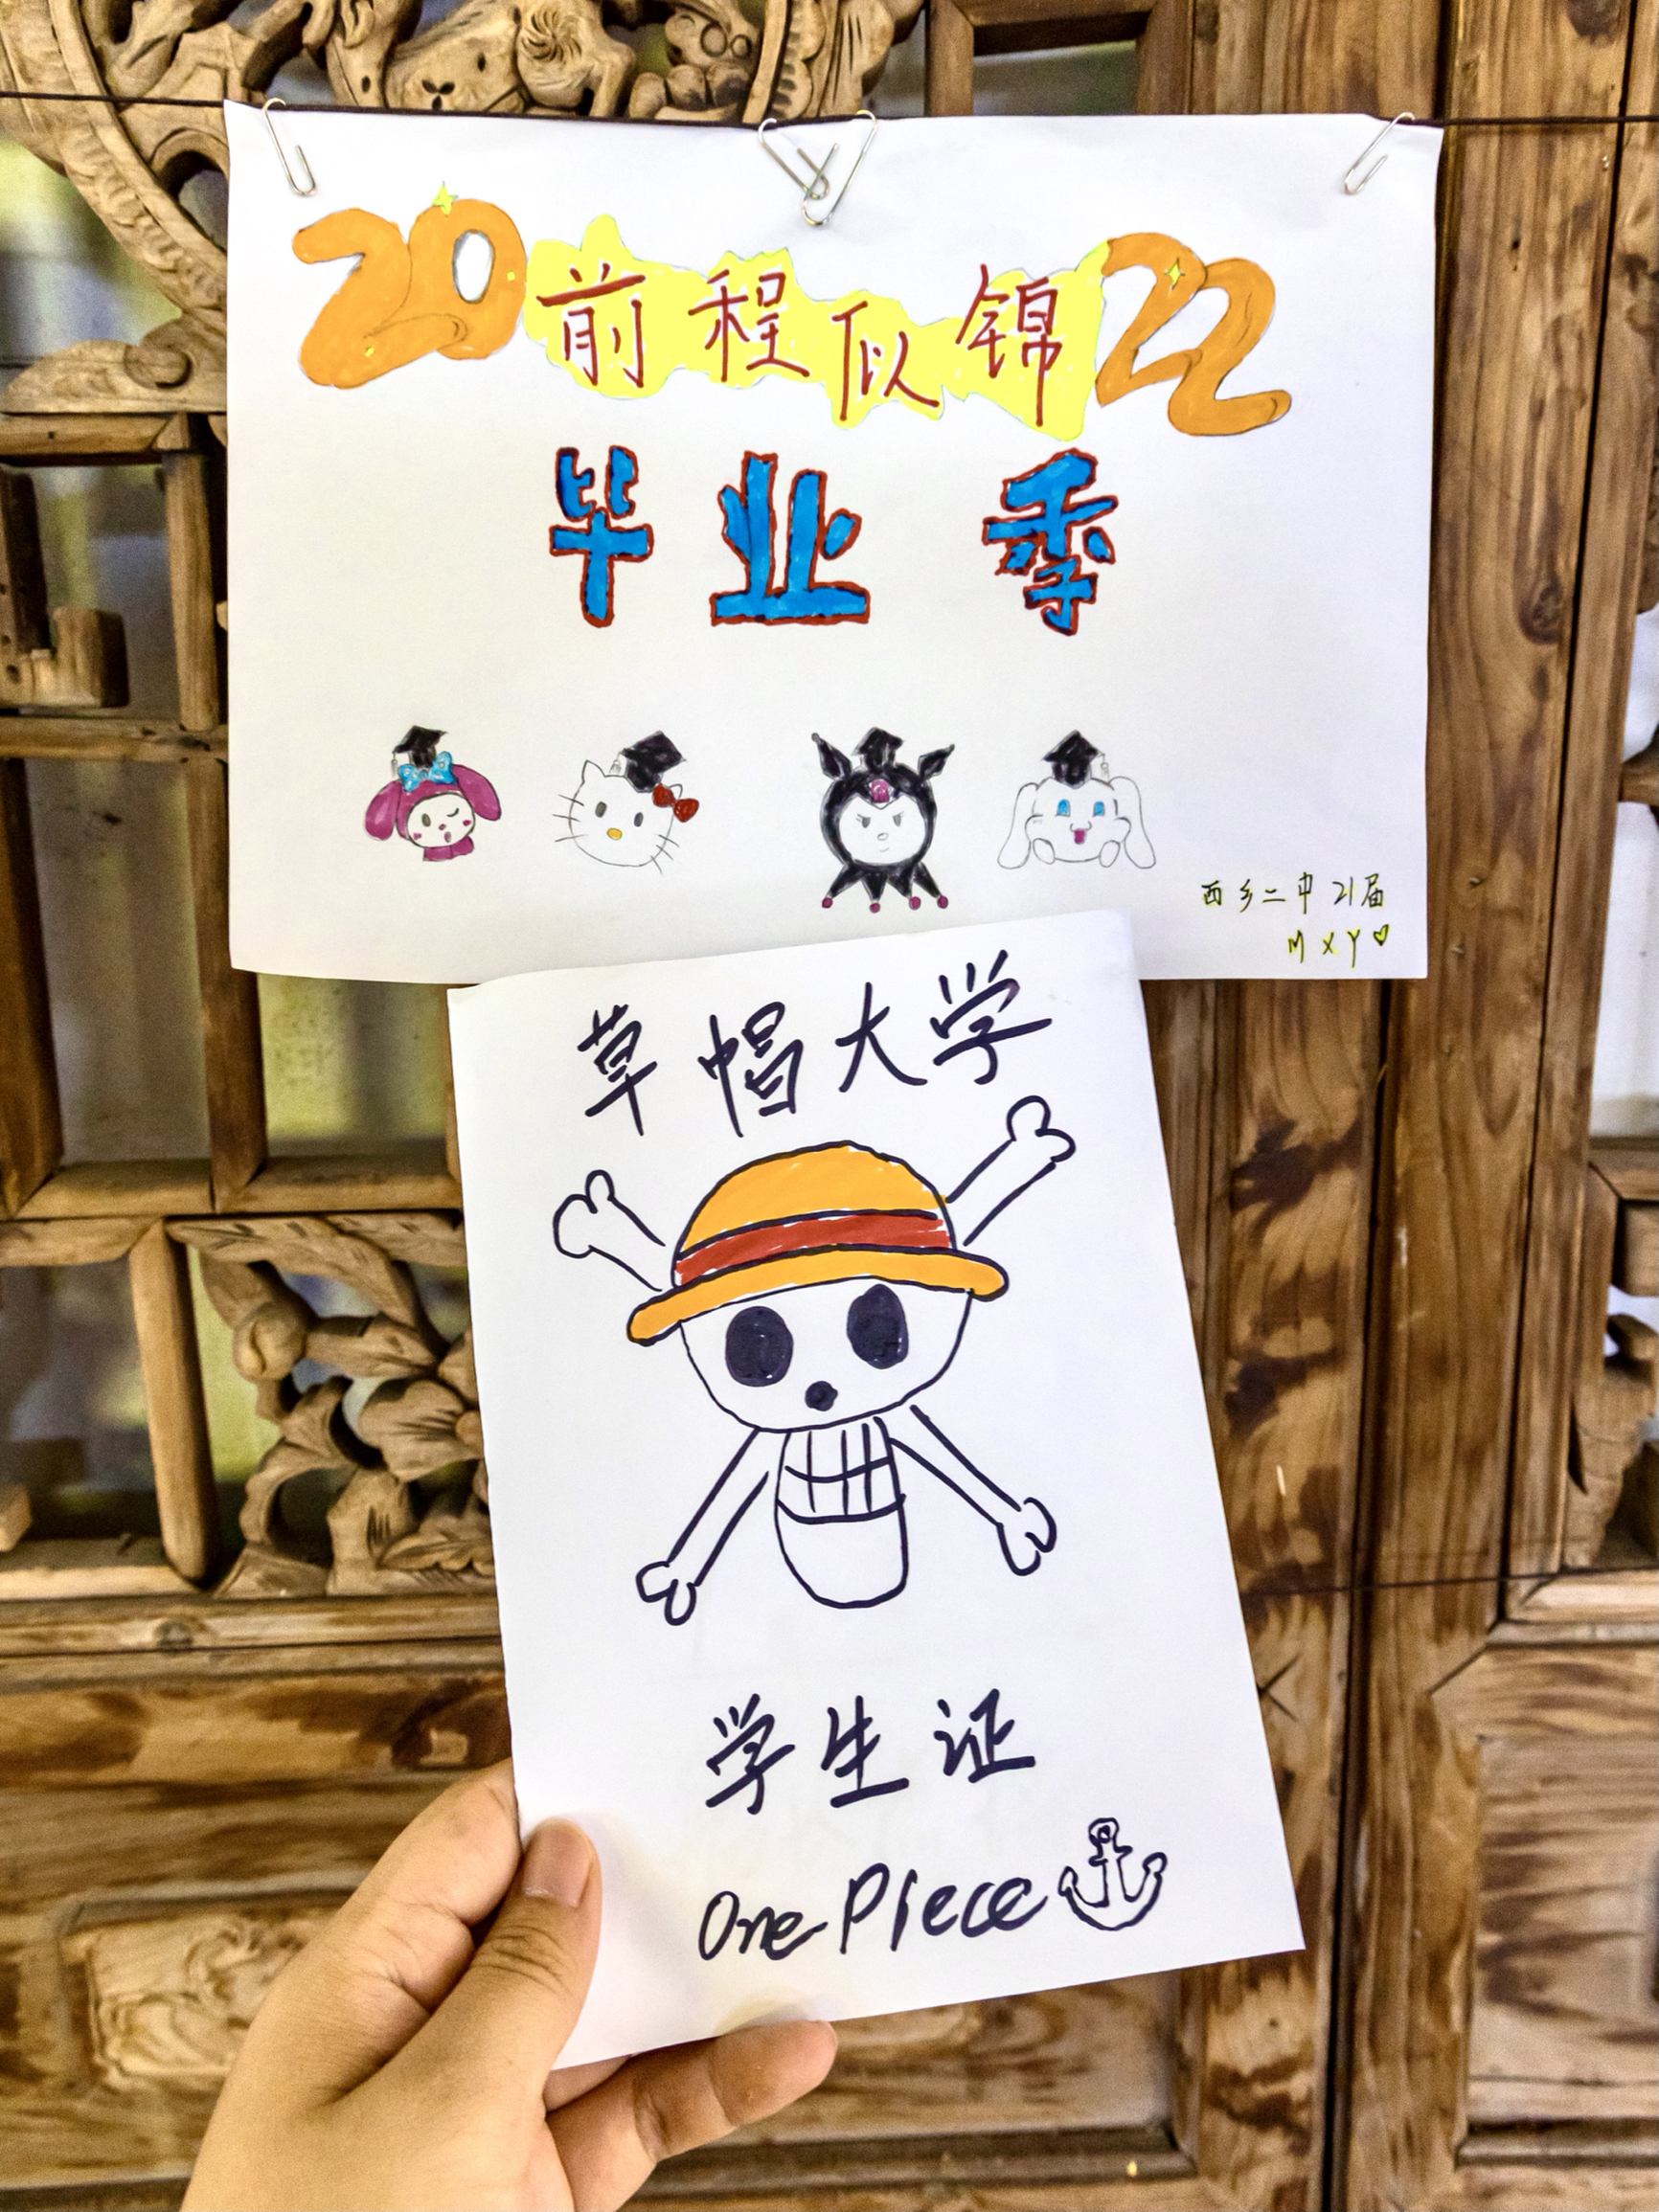 20前程似锦22
毕业季
西乡二中 21届
MXY♡
草帽大学
学生证
One Piece